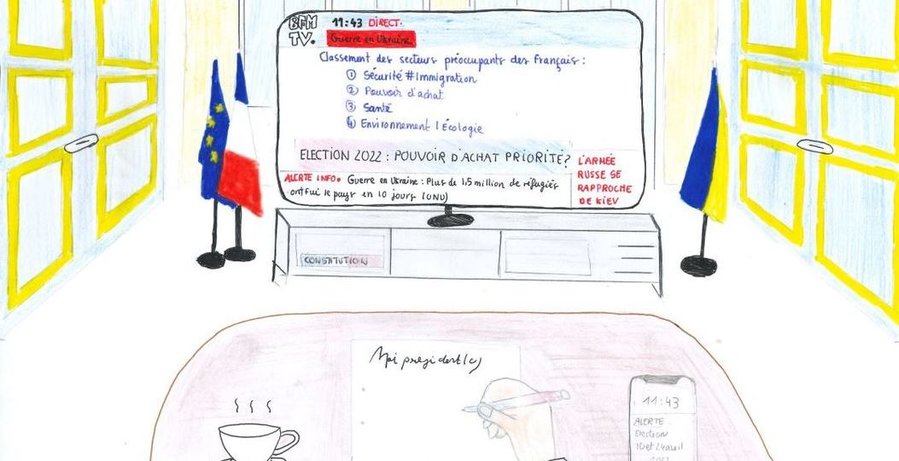 BFM
TV.
11:43 DIRECT.
Guerre en Ukraine
Classement des secteurs préoccupants des Français :
① Sécurité #Immigration
② Pouvoir d'achat
③ Santé
④ Environnement / Écologie
ELECTION 2022 : POUVOIR D'ACHAT PRIORITE ?
ALERTE INFO• Guerre en Ukraine : Plus de 1,5 million de réfugiés
ont fui le pays en 10 jours (ONU)
L'ARMÉE
RUSSE SE
RAPPROCHE
DE KIEV
CONSTITUTION
Moi président(e)
11:43
ALERTE :
Election
10 et 24 avril
2022